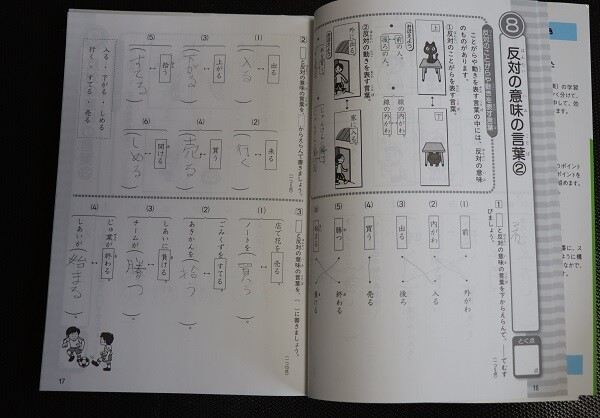 8 反対の意味の言葉②
とく点
点
反対のことがらや動きを表す言葉
ことがらや動きを表す言葉の中には、反対の意味
のものがあります。
①反対のことがらを表す言葉。
上
下
おぼえよう
前の人。
後ろの人。
線の内がわ。
線の外がわ。
②反対の動きを表す言葉。
外に出る。
家に入る。
おぼえよう
1 と反対の意味の言葉を下からえらんで、 でむす
びましょう。
(1) 前
(2) 内がわ
(3) 出る
(4) 買う
(5) 勝つ
外がわ
入る
後ろ
売る
終わる
負ける
16
2 と反対の意味の言葉を、 からえらんで書きましょう。
(1) 出る
入る
(2) 来る
行く
(3) 上がる
下がる
(4) 買う
売る
(5) 拾う
すてる
(6) 開ける
しめる
入る・下がる・しめる
行く・すてる・売る
3 と反対の意味の言葉を、( )に書きましょう。
(1) 店で花を売る。
ノートを(買う)。
(2) ごみくずをすてる。
あきかんを(拾う)。
(3) しあいに負ける。
チームが(勝つ)。
(4) じゅ業が終わる。
しあいが(始まる)。
17